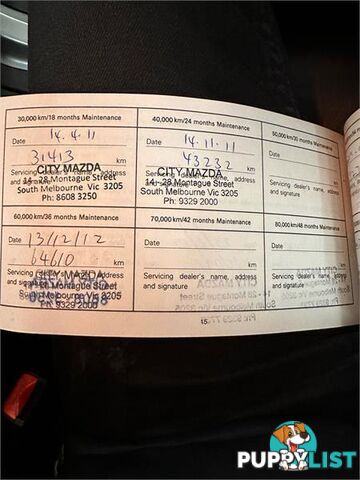 30,000 km/18 months Maintenance
Date 14.4.11
31413 km
CITY MAZDA
Servicing dealer's name, address and signature
14 - 28 Montague Street
South Melbourne Vic 3205
Ph: 8608 3250
40,000 km/24 months Maintenance
Date 14.11.11
43232 km
CITY MAZDA
Servicing dealer's name, address and signature
14 - 28 Montague Street
South Melbourne Vic 3205
Ph: 9329 2000
50,000 km/30 months Maintenance
Date
Servicing dealer's name, address and signature
60,000 km/36 months Maintenance
Date 13/12/12
64610 km
Servicing dealer's name, address and signature
CITY MAZDA
Montague Street
South Melbourne Vic 3205
Ph: 9329 2000
70,000 km/42 months Maintenance
Date
km
Servicing dealer's name, address and signature
80,000 km/48 months Maintenance
Date
Servicing dealer's name, address and signature
15
PUPPYLIST